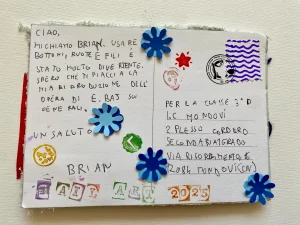 CIAO,
MI CHIAMO BRIAN. USARE
BOTTONI, RUOTE E FILI È
STATO MOLTO DIVERTENTE.
SPERO CHE TI PIACCIA LA
MIA RIPRODUZIONE DELL'
OPERA DI E. BAJ SUI
GENERALI.
UN SALUTO
BRIAN
MAIL ART 2025
PER LA CLASSE 3° D
I.C. MONDOVÌ
2 PLESSO CORDERO
SECONDARIA I GRADO
VIA RISORGIMENTO
12084 MONDOVÌ (CN)